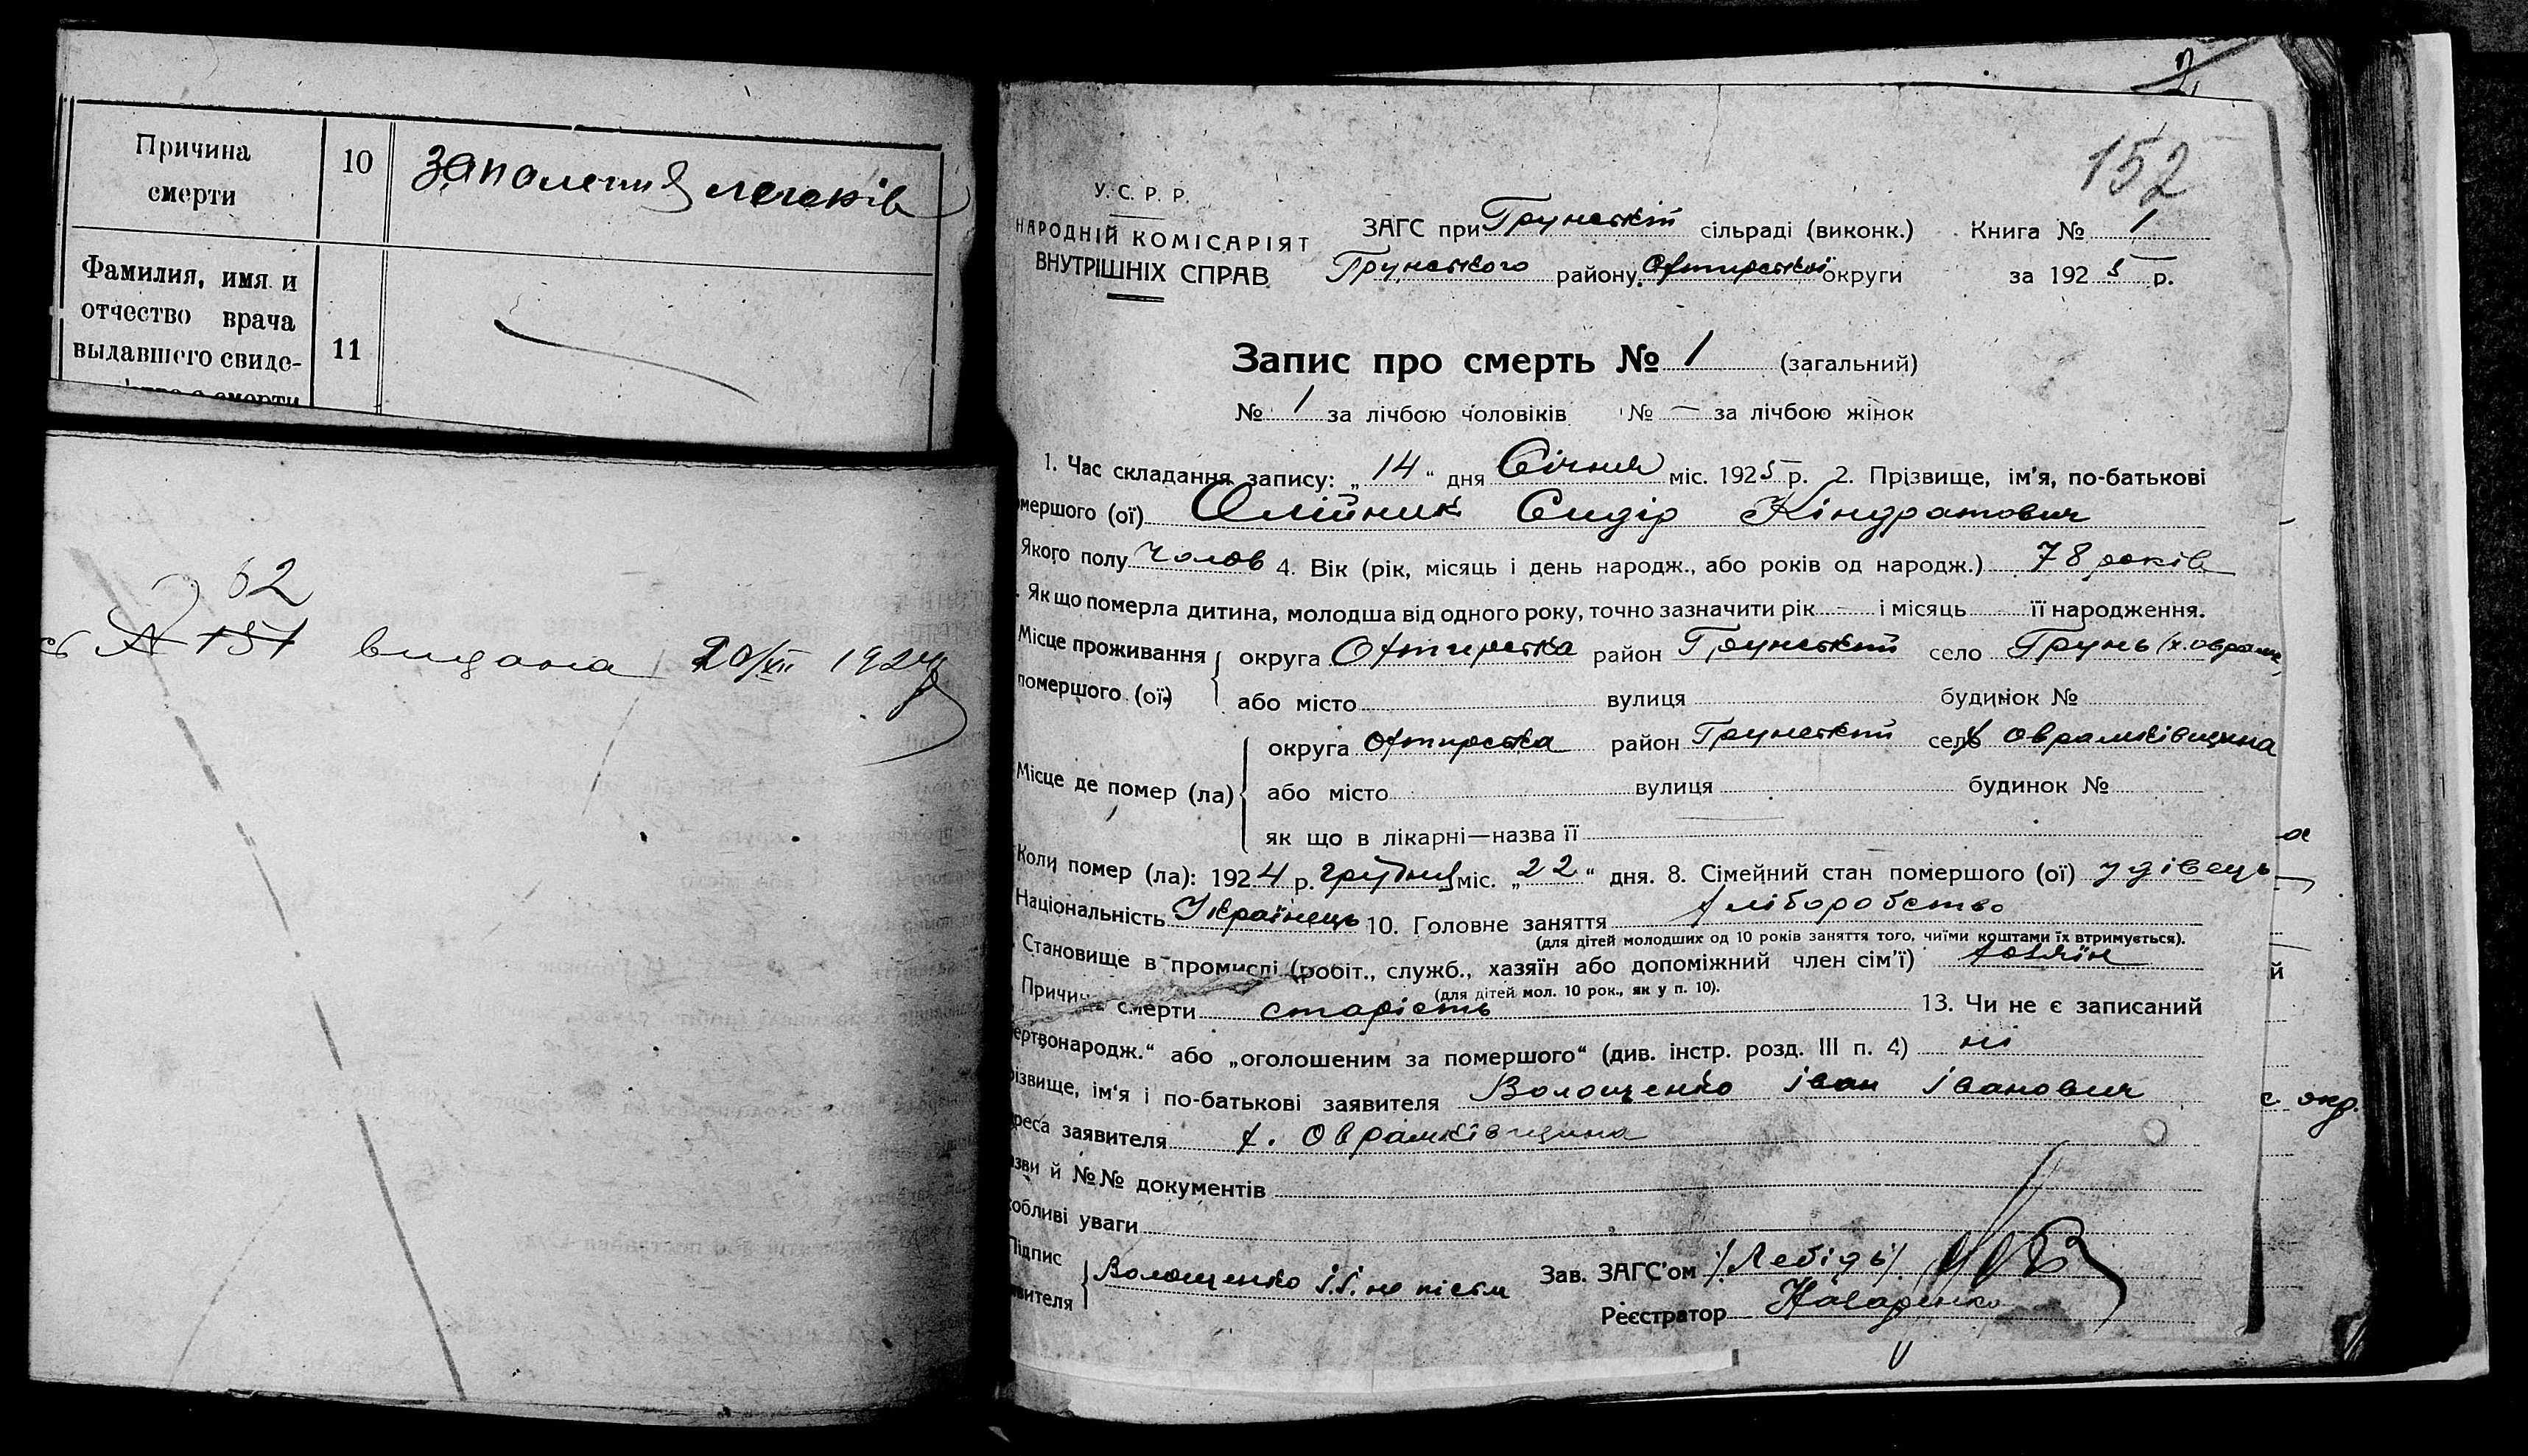 Причина
смерти
10
запалення легенів
Фамилия, имя и
отчество врача
выдавшего свиде-
11
62
№ 151 видана 20/VII 1924
2
152
У. С. Р. Р.
НАРОДНІЙ КОМІСАРІЯТ
ВНУТРІШНІХ СПРАВ
ЗАГС при Грунській сільраді (виконк.) Книга № 1
Грунського району Охтирської округи за 1925 р.
Запис про смерть № 1 (загальний)
№ 1 за лічбою чоловіків № — за лічбою жінок
1. Час складання запису: „14“ дня Січня міс. 1925 р. 2. Прізвище, ім'я, по-батькові
мершого (ої) Олійник Сидір Кіндратович
Якого полу Чолов 4. Вік (рік, місяць і день народж., або років од народж.) 78 років
Як що померла дитина, молодша від одного року, точно зазначити рік — і місяць її народження.
Місце проживання
помершого (ої)
округа Охтирська район Грунський село Грунь (х. Оврамк
або місто вулиця будинок №
Місце де помер (ла)
округа Охтирська район Грунський село х Оврамківщина
або місто вулиця будинок №
як що в лікарні—назва її
Коли помер (ла): 1924 р. грудня міс. „22“ дня. 8. Сімейний стан помершого (ої) удівець
Національність Українець 10. Головне заняття хліборобство
(для дітей молодших од 10 років заняття того, чиїми коштами їх втримується).
Становище в промислі (робіт., служб., хазяїн або допоміжний член сім'ї) хозяїн
(для дітей мол. 10 рок., як у п. 10).
Причина смерти старість 13. Чи не є записаний
ертвонародж.“ або „оголошеним за помершого“ (див. інстр. розд. III п. 4) ні
різвище, ім'я і по-батькові заявителя Волощенко Іван Іванович
реса заявителя х. Оврамківщина
азви й №№ документів
собливі уваги
Підпис
явителя
Волощенко І.І. не пісьм
Зав. ЗАГС'ом /Лебідь/
Реєстратор Назаренко